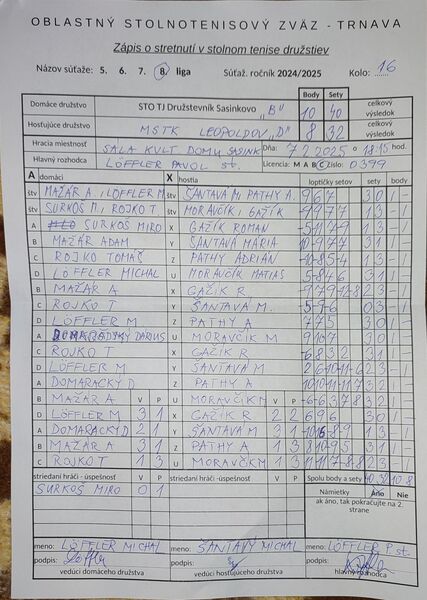 OBLASTNÝ STOLNOTENISOVÝ ZVÄZ - TRNAVA
Zápis o stretnutí v stolnom tenise družstiev
Názov súťaže: 5. 6. 7. 8. liga Súťaž. ročník 2024/2025 Kolo: 16
Body Sety
Domáce družstvo STO TJ Družstevník Sasinkovo „B" 10 40 celkový výsledok
Hosťujúce družstvo MSTK LEOPOLDOV „D" 8 32 celkový výsledok
Hracia miestnosť SALA KULT DOMU SASINK Dňa: 7.2.2025 o 18:15 hod.
Hlavný rozhodca LÖFFLER PAVOL st. Licencia: M A B C Číslo: 0399
A domáci X hostia loptičky setov sety body
štv MAŽÁR A, LÖFFLER M štv ŠANTAVÁ M, PATHY A. 9 6 7 3 0 1 -
štv SURKOŠ M, ROJKO T štv MORAVČÍK, GAŽÍK 1 3 - 1
A SURKOŠ MIRO X GAŽÍK ROMAN 1 3 - 1
B MAŽÁR ADAM Y ŠANTAVÁ MÁRIA 3 1 1 -
C ROJKO TOMÁŠ Z PATHY ADRIÁN 1 3 - 1
D LÖFFLER MICHAL U MORAVČÍK MATIAS 3 1 1 -
B MAŽÁR A X GAŽÍK R
C ROJKO T Y ŠANTAVÁ M. 0 3 - 1
D LÖFFLER M Z PATHY A 7 7 5 3 0 1 -
A DOMARACKÝ DARIUS U MORAVČÍK M 3 0 1 -
C ROJKO T X GAŽÍK R 3 1 1 -
D LÖFFLER M Y ŠANTAVÁ M
A DOMARACKÝ D Z PATHY A.
B MAŽÁR A V P U MORAVČÍK M V P
D LÖFFLER M 3 1 X GAŽÍK R 2 2 6 9 6 3 0 1 -
A DOMARACKÝ D 2 1 Y ŠANTAVÁ M 3 1 1 3 - 1
B MAŽÁR A 3 1 Z PATHY A 1 3 3 1 1 -
C ROJKO T 1 3 U MORAVČÍK M 1 3
striedaní hráči -úspešnosť V P striedaní hráči - úspešnosť V P Spolu body a sety 40:32 10:8
SURKOŠ MIRO 0 1 Námietky Áno Nie
ak áno, tak pokračujte na 2. strane
meno: LÖFFLER MICHAL meno: ŠANTAVÝ MICHAL meno: LÖFFLER P st.
podpis: podpis: podpis:
vedúci domáceho družstva vedúci hosťujúceho družstva hlavný rozhodca